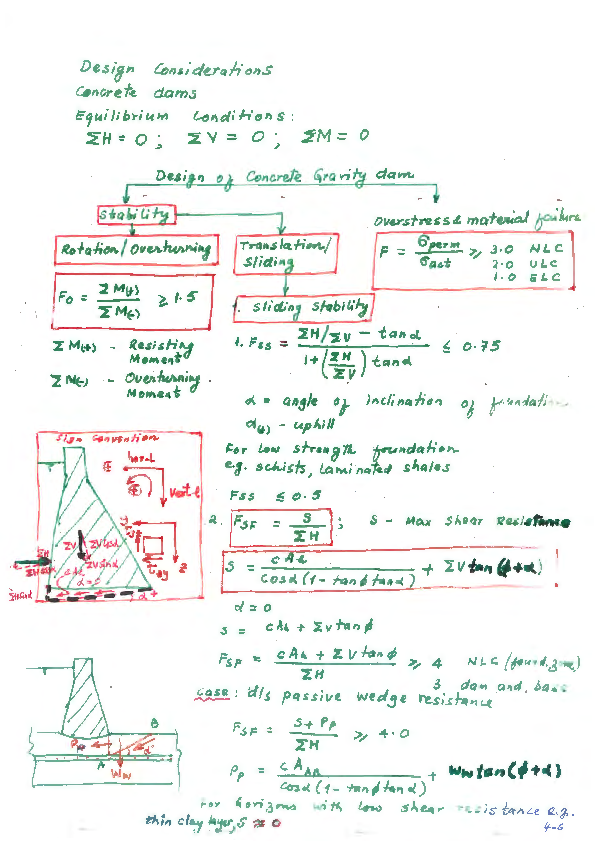 Design Considerations
Concrete dams
Equilibrium Conditions:
ΣH = 0 ; ΣV = 0 ; ΣM = 0
Design of Concrete Gravity dam
Stability
Overstress & material failure
Rotation/Overturning
Translation/
Sliding
F = σperm / σact ≥ 3.0 NLC
2.0 ULC
1.0 ELC
Fo = ΣM(+) / ΣM(-) ≥ 1.5
1. Sliding Stability
ΣM(+) - Resisting
Moment
ΣM(-) - Overturning
Moment
1. Fss = (ΣH/ΣV - tanα) / (1+(ΣH/ΣV) tanα) ≤ 0.75
α = angle of inclination of foundation
α(+) - uphill
For low strength foundation
e.g. schists, laminated shales
Fss ≤ 0.5
Sign Convention
hor-l
Vert-l
2. FSF = S / ΣH ; S - Max Shear Resistance
S = cAh / (cosα(1 - tanφ tanα)) + ΣV tan(φ+α)
ΣV
ΣVcosα
ΣVsinα
ΣH
z
α = 0
S = cAh + ΣV tanφ
FSF = (cAh + ΣV tanφ) / ΣH ≥ 4 NLC (found. zone)
3 dam and. base
case: d/s passive wedge resistance
FSF = (S + Pp) / ΣH ≥ 4.0
B
α
A
Ww
Pp = cAAB / (cosα(1 - tanφ tanα)) + Ww tan(φ+α)
For horizons with low shear resistance e.g.
thin clay layer, S ≈ 0
4-6